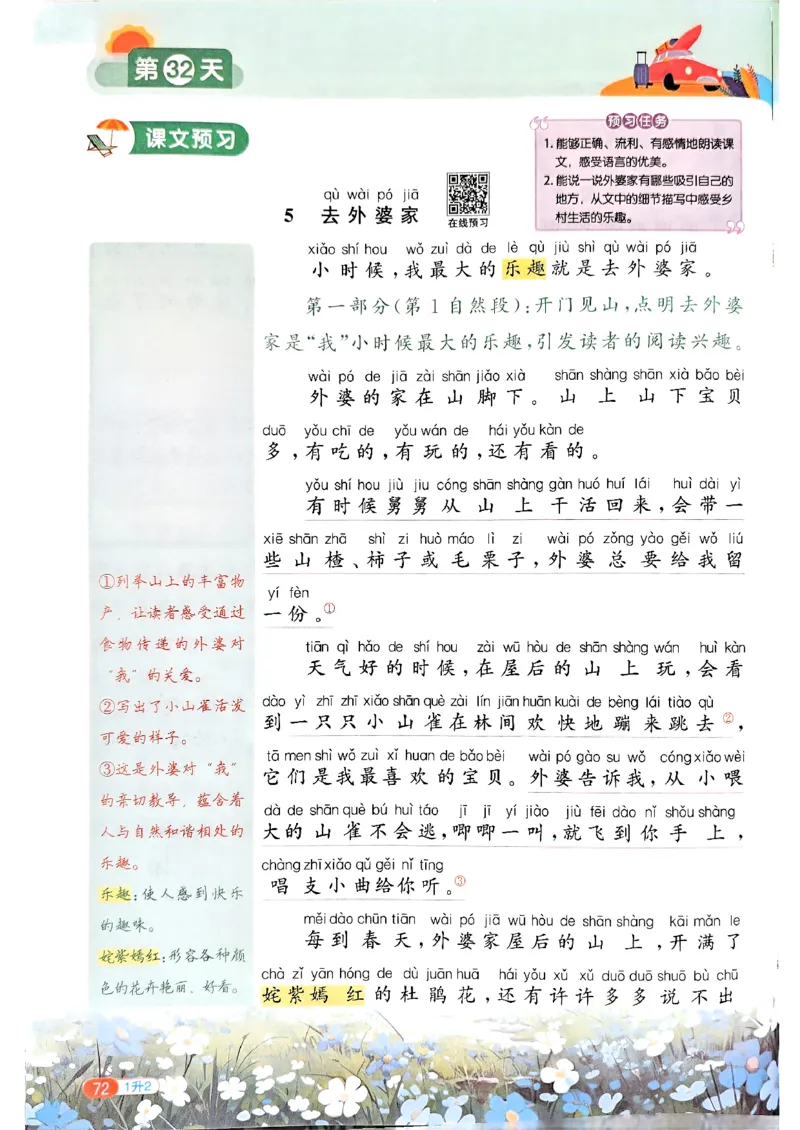 第32天
课文预习
预习任务
1. 能够正确、流利、有感情地朗读课
文，感受语言的优美。
2. 能说一说外婆家有哪些吸引自己的
地方，从文中的细节描写中感受乡
村生活的乐趣。
qù wài pó jiā
5 去外婆家
在线预习
xiǎo shí hou wǒ zuì dà de lè qù jiù shì qù wài pó jiā
小时候，我最大的乐趣就是去外婆家。
第一部分（第1自然段）：开门见山，点明去外婆
家是“我”小时候最大的乐趣，引发读者的阅读兴趣。
wài pó de jiā zài shān jiǎo xià shān shàng shān xià bǎo bèi
外婆的家在山脚下。山上山下宝贝
duō yǒu chī de yǒu wán de hái yǒu kàn de
多，有吃的，有玩的，还有看的。
yǒu shí hou jiù jiu cóng shān shàng gàn huó huí lái huì dài yì
有时候舅舅从山上干活回来，会带一
xiē shān zhā shì zi huò máo lì zi wài pó zǒng yào gěi wǒ liú
些山楂、柿子或毛栗子，外婆总要给我留
yí fèn
一份。①
tiān qì hǎo de shí hou zài wū hòu de shān shàng wán huì kàn
天气好的时候，在屋后的山上玩，会看
dào yì zhī zhī xiǎo shān què zài lín jiān huān kuài de bèng lái tiào qù
到一只只小山雀在林间欢快地蹦来跳去②，
tā men shì wǒ zuì xǐ huan de bǎo bèi wài pó gào su wǒ cóng xiǎo wèi
它们是我最喜欢的宝贝。外婆告诉我，从小喂
dà de shān què bú huì táo jī jī yí jiào jiù fēi dào nǐ shǒu shàng
大的山雀不会逃，唧唧一叫，就飞到你手上，
chàng zhī xiǎo qǔ gěi nǐ tīng
唱支小曲给你听。③
měi dào chūn tiān wài pó jiā wū hòu de shān shàng kāi mǎn le
每到春天，外婆家屋后的山上，开满了
chà zǐ yān hóng de dù juān huā hái yǒu xǔ xǔ duō duō shuō bù chū
姹紫嫣红的杜鹃花，还有许许多多说不出
①列举山上的丰富物
产，让读者感受通过
食物传递的外婆对
“我”的关爱。
②写出了小山雀活泼
可爱的样子。
③这是外婆对“我”
的亲切教导，蕴含着
人与自然和谐相处的
乐趣。
乐趣：使人感到快乐
的趣味。
姹紫嫣红：形容各种颜
色的花卉艳丽、好看。
72 1升2